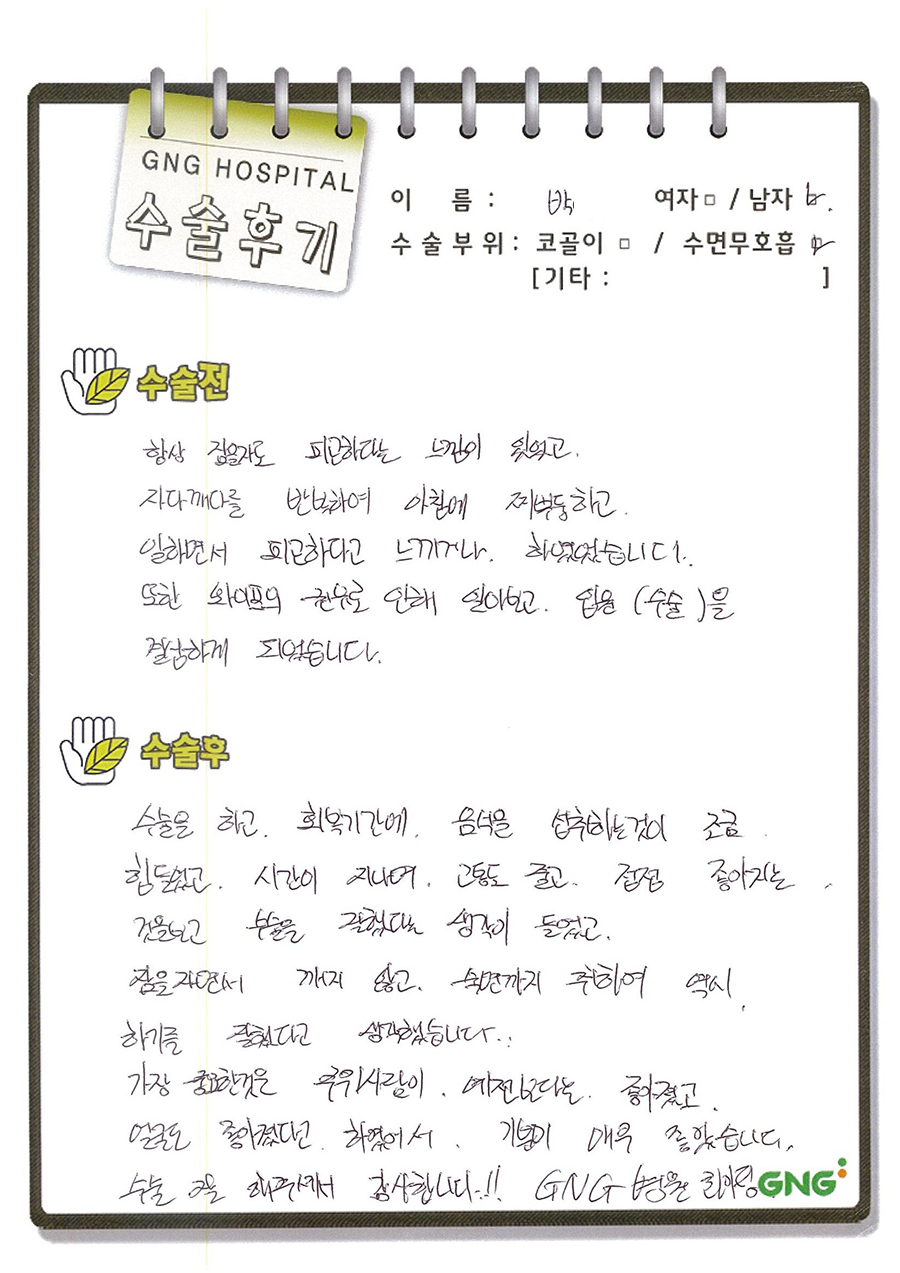 GNG HOSPITAL
수술후기
이 름 : 박 여자 □ / 남자
수술부위 : 코골이 □ / 수면무호흡
[기타 : ]
수술전
항상 잠을자도 피곤하다는 느낌이 있었고.
자다깨다를 반복하여 아침에 찌뿌둥하고.
일하면서 피곤하다고 느끼거나. 하였었습니다.
또한 와이프의 권유로 인해 알아보고. (수술)을
결심하게 되었습니다.
수술후
수술을 하고. 회복기간에. 음식을 섭취하는것이 조금.
힘들었고. 시간이 지나며. 고통도 줄고. 점점 좋아지는,
것을보고 수술을 잘했다는 생각이 들었고.
잠을자면서 깨지 않고. 숙면까지 취하여 역시.
하기를 잘했다고 생각했습니다..
가장 중요한것은 주위사람이. 예전보다는. 좋아졌고.
얼굴도 좋아졌다고 하였어서. 기분이 매우 좋았습니다.
수술 해주셔서 감사합니다..!! GNG 병원
GNG